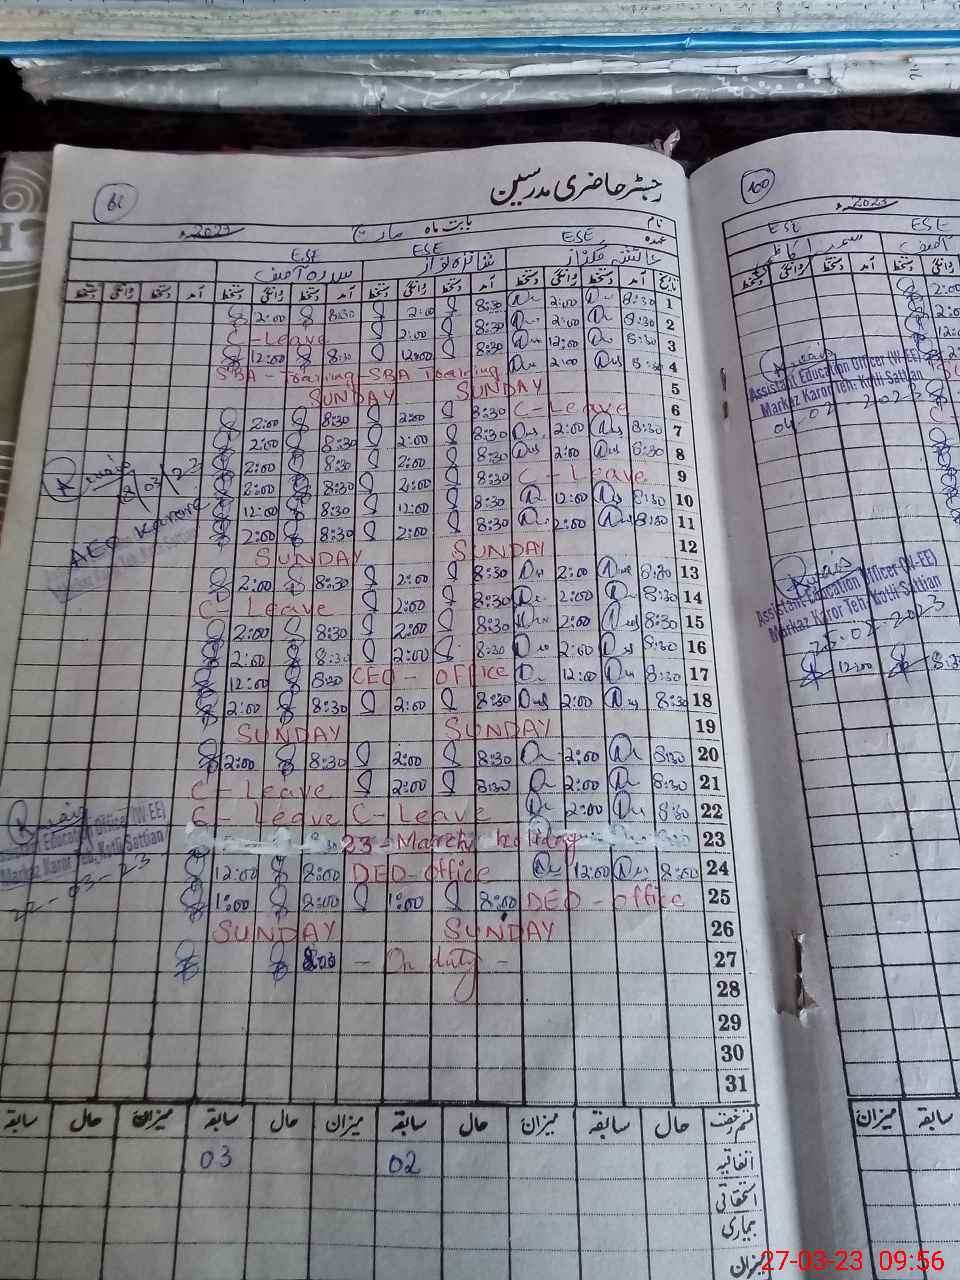 رجسٹر حاضری مدرسین
61
نام بابت ماہ مارچ 2023ء
عہدہ ESE ESE ESE
تاریخ آمد دستخط روانگی دستخط آمد دستخط روانگی دستخط آمد دستخط روانگی دستخط آمد دستخط روانگی دستخط
1 8:30 2:00 8:30 2:00 8:30 2:00
2 8:30 2:00 8:30 2:00 C-Leave
3 8:30 12:00 8:30 12:00 8:30 12:00
4 8:30 2:00 SBA Training SBA - Training
5 SUNDAY SUNDAY
6 C-Leave 8:30 2:00 8:30 2:00
7 8:30 2:00 8:30 2:00 8:30 2:00
8 8:30 2:00 8:30 2:00 8:30 2:00
9 C-Leave 8:30 2:00 8:30 2:00
10 8:30 12:00 8:30 12:00 8:30 12:00
11 8:30 2:00 8:30 2:00 8:30 2:00
12 SUNDAY SUNDAY
13 8:30 2:00 8:30 2:00 8:30 2:00
14 8:30 2:00 8:30 2:00 C-Leave
15 8:30 2:00 8:30 2:00 8:30 2:00
16 8:30 2:00 8:30 2:00 8:30 2:00
17 8:30 12:00 CEO - OFFICE 8:30 12:00
18 8:30 2:00 8:30 2:00 8:30 2:00
19 SUNDAY SUNDAY
20 8:30 2:00 8:30 2:00 8:30 2:00
21 8:30 2:00 8:30 2:00 C-Leave
22 8:30 2:00 C-Leave C-Leave
23 23-March holiday
24 8:00 12:00 DEO-office 8:00 12:00
25 DEO-office 8:00 1:00 8:00 1:00
26 SUNDAY SUNDAY
27 - On duty - 8:00
28
29
30
31
قسم رخصت حال سابقہ میزان حال سابقہ میزان حال سابقہ میزان حال سابقہ
اتفاقیہ 02 03
استحقاقی
بیماری
میزان
AEO Karor
22-03-23
100
2023ء
ESE ESE
Assistant Education Officer (W-EE)
Markaz Karor Teh. Kotli Sattian
Assistant Education Officer (W-EE)
Markaz Karor Teh. Kotli Sattian
12:00 8:30
میزان سابقہ
27-03-23 09:56